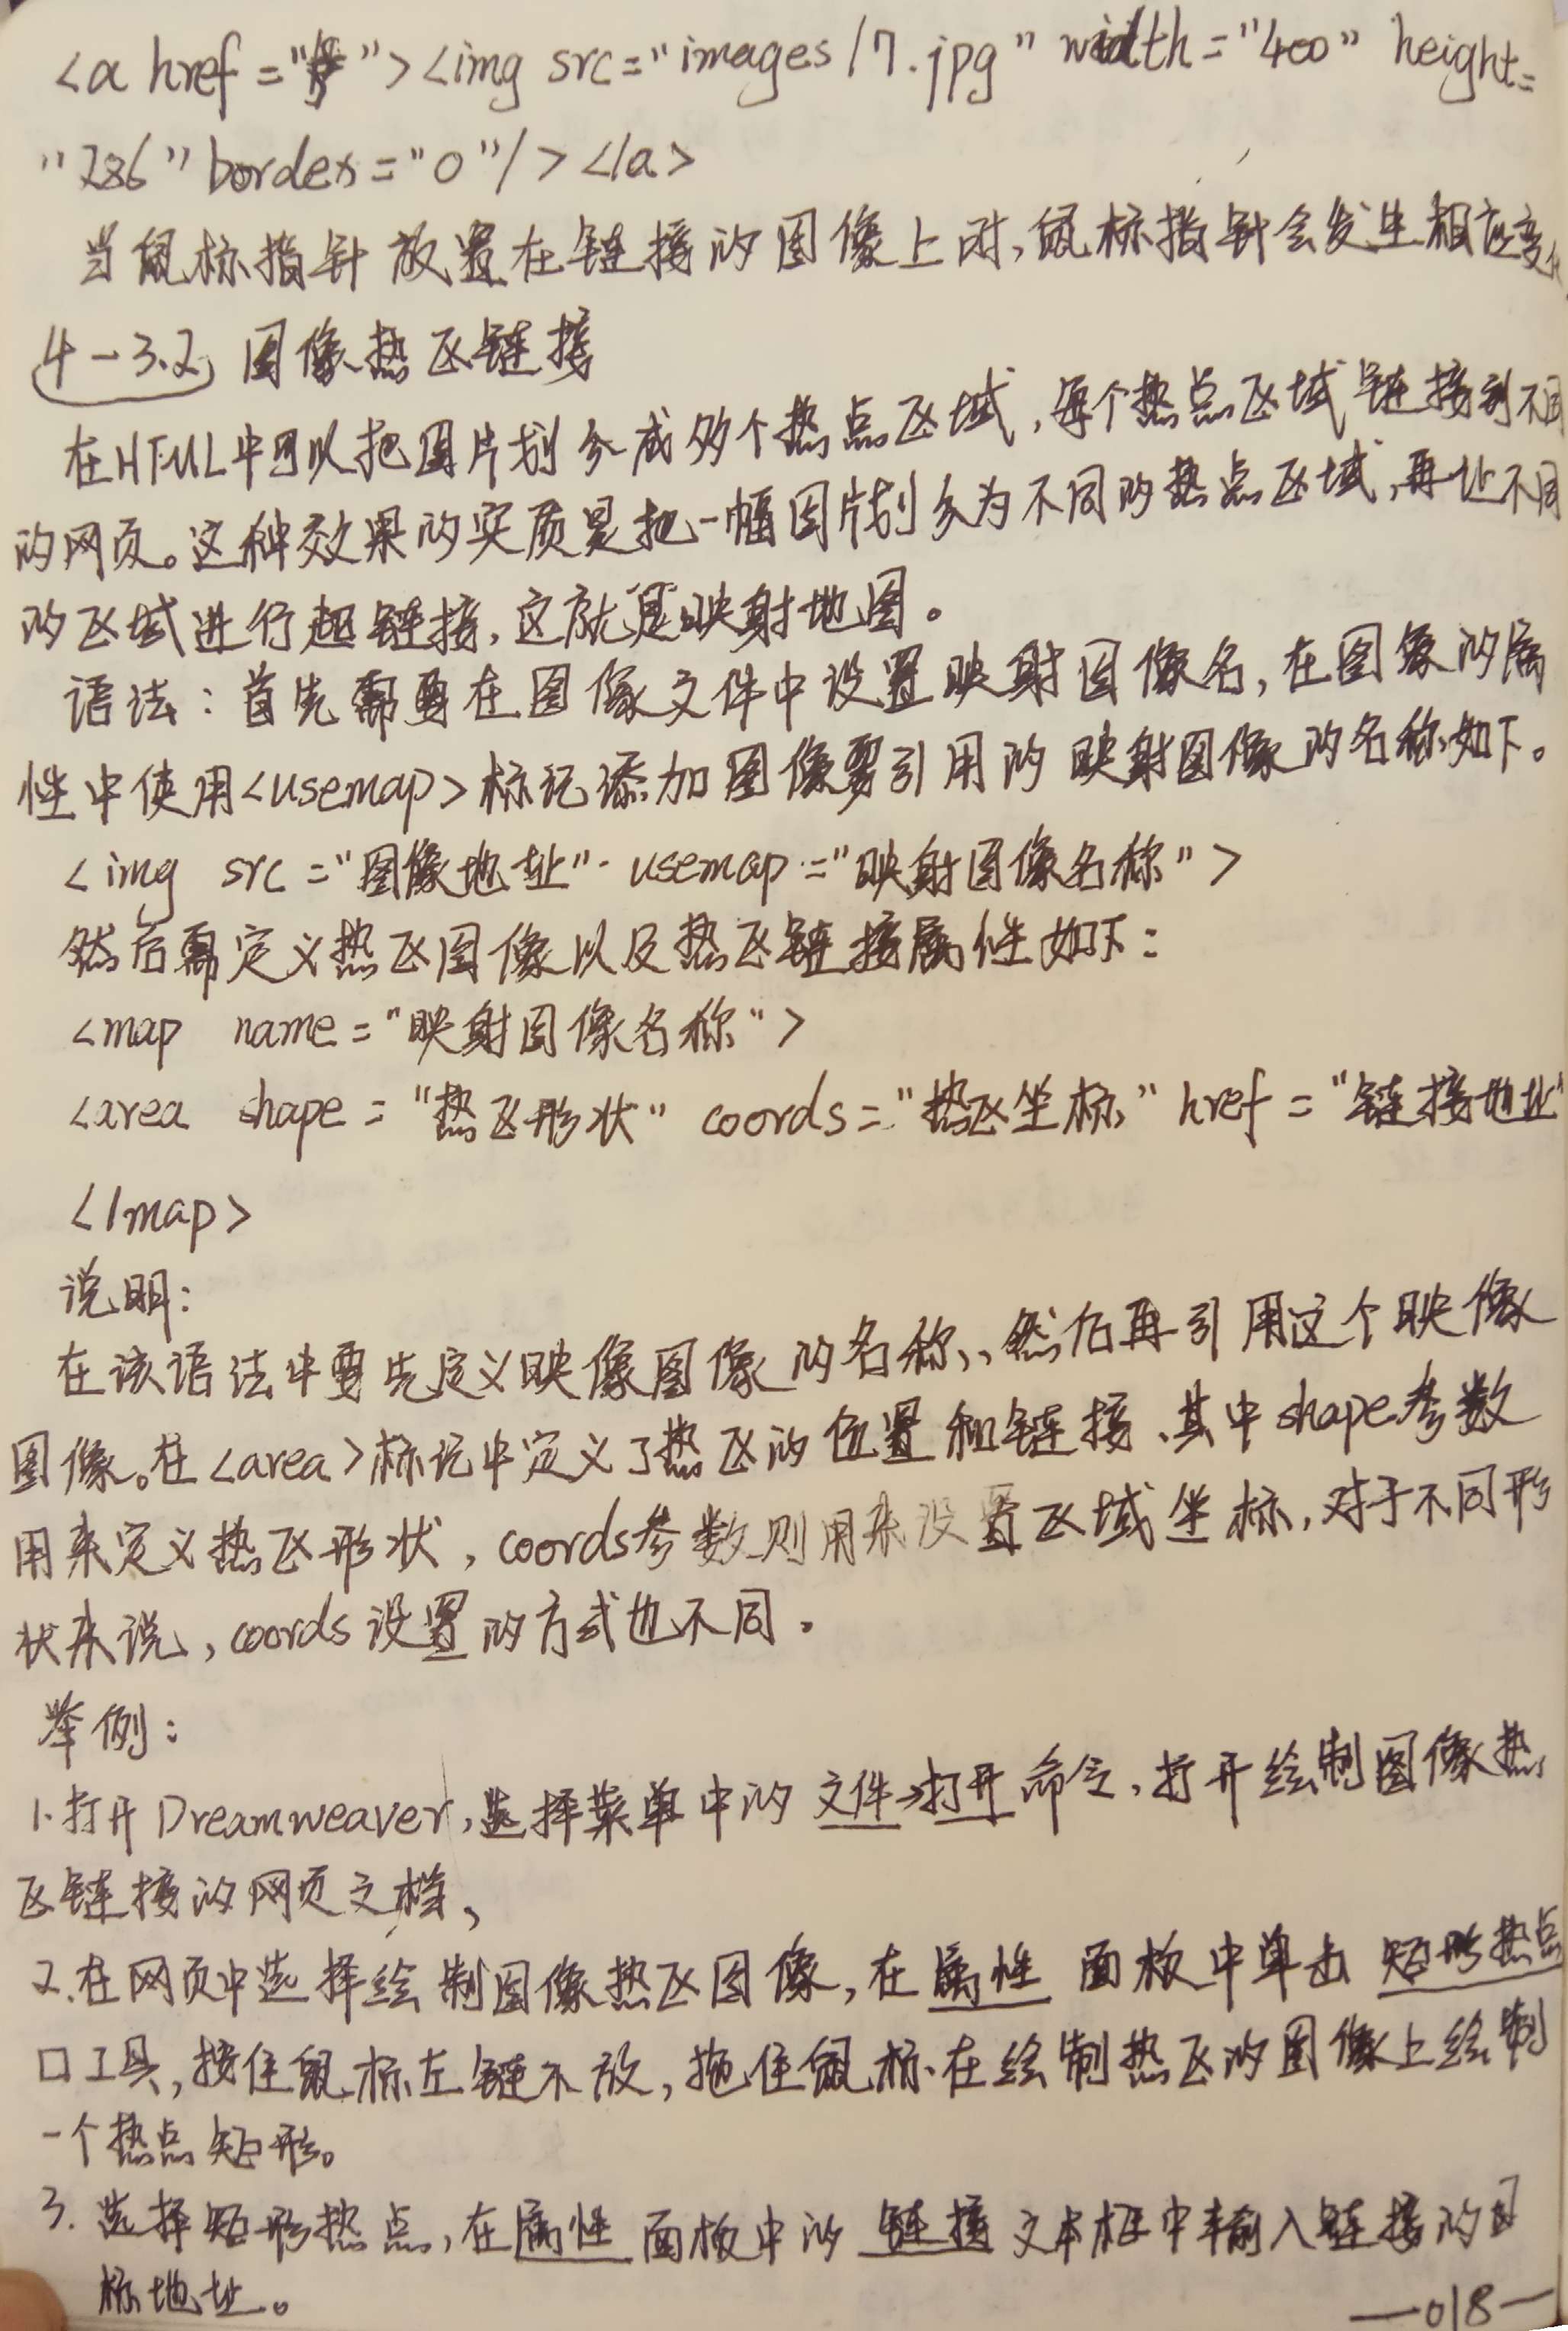 <a href="#"><img src="images/7.jpg" width="400" height=
"286" border="0"/></a>
当鼠标指针放置在链接的图像上时,鼠标指针会发生相应变
4-3.2 图像热区链接
在HTML中可以把图片划分成多个热点区域,每个热点区域链接到不同
的网页。这种效果的实质是把一幅图片划分为不同的热点区域,再让不同
的区域进行超链接,这就是映射地图。
语法:首先需要在图像文件中设置映射图像名,在图像的属
性中使用<usemap>标记添加图像要引用的映射图像的名称如下。
<img src="图像地址" usemap="映射图像名称">
然后需定义热区图像以及热区链接属性如下:
<map name="映射图像名称">
<area shape="热区形状" coords="热区坐标" href="链接地址"
</map>
说明:
在该语法中要先定义映像图像的名称,然后再引用这个映像
图像。在<area>标记中定义了热区的位置和链接、其中shape参数
用来定义热区形状,coords参数则用来设置区域坐标,对于不同形
状来说,coords设置的方式也不同。
举例:
1.打开Dreamweaver,选择菜单中的文件→打开命令,打开绘制图像热
区链接的网页文档,
2.在网页中选择绘制图像热区图像,在属性面板中单击矩形热点
口工具,按住鼠标左键不放,拖住鼠标在绘制热区的图像上绘制
一个热点矩形。
3.选择矩形热点,在属性面板中的链接文本框中输入链接的目
标地址。
—018—